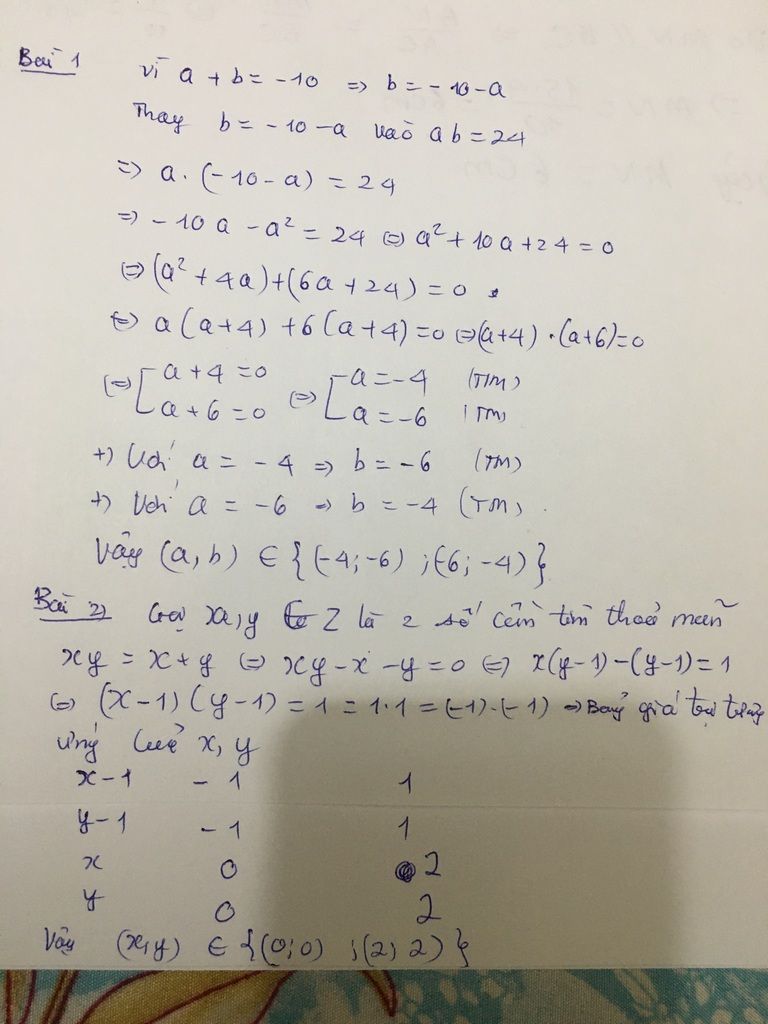 Bài 1
vì a + b = -10 => b = -10-a
Thay b = -10-a vào ab = 24
=> a. (-10-a) = 24
=> -10a - a² = 24 <=> a² + 10a + 24 = 0
<=> (a² + 4a) + (6a + 24) = 0
<=> a(a+4) + 6(a+4) = 0 <=> (a+4) . (a+6) = 0
<=> [ a + 4 = 0 <=> [ a = -4 (TM)
a + 6 = 0 a = -6 (TM)
+) Với a = -4 => b = -6 (TM)
+) Với a = -6 => b = -4 (TM)
Vậy (a, b) ∈ {(-4; -6) ; (-6; -4)}
Bài 2) Gọi x, y ∈ Z là 2 số cần tìm thoả mãn
xy = x + y <=> xy - x - y = 0 <=> x(y-1) - (y-1) = 1
<=> (x-1) (y-1) = 1 = 1.1 = (-1).(-1) => Bảng giá trị
ứng của x, y
x-1 -1 1
y-1 -1 1
x 0 2
y 0 2
Vậy (x,y) ∈ {(0;0) ; (2; 2)}